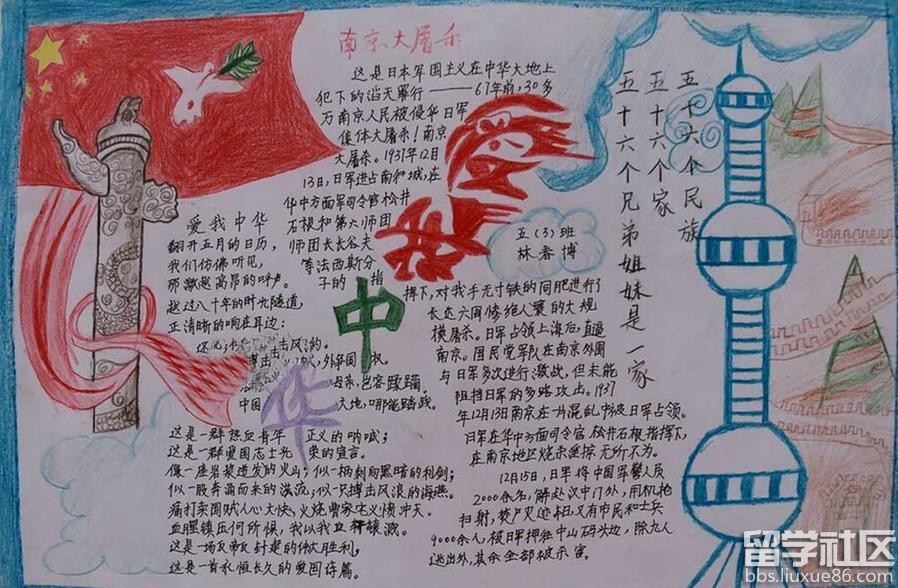 南京大屠杀
这是日本军国主义在中华大地上
犯下的滔天罪行——67年前,30多
万南京人民被侵华日军
集体大屠杀!南京
大屠杀。1937年12月
13日,日军进占南京城,在
华中方面军司令官松井
石根和第六师团
师团长谷夫
等法西斯分
子的指
挥下,对我手无寸铁的同胞进行了
长达六周惨绝人寰的大规
模屠杀。日军占领上海后,直逼
南京。国民党军队在南京外围
与日军多次进行激战,但未能
阻挡日军的多路攻击。1937
年12月13日南京在一片混乱中被日军占领。
日军在华中方面司令官松井石根指挥下,
在南京地区烧杀淫掠无所不为。
12月15日,日军将中国军警人员
2000余名,解赴汉中门外,用机枪
扫射,焚尸灭迹。
9000余人,被日军押往
逃出外,其余全部被杀害。
爱我中华
翻开五月的日历,
我们仿佛听见,
那激越高昂的呼声
越过八十年的时光隧道,
正清晰的响在耳边:
击风的
中国
大地,哪能踏践。
这是一群热血青年 正义的呐喊;
这是一群爱国志士 的宣言。
像一座岩浆迸发的火山;似一柄刺向黑暗的利剑;
似一股奔涌而来的洪流;似一只搏击风浪的海燕。
痛打卖国贼人心大快,火烧曹家宅义愤冲天。
血腥镇压何所惧,我以我
这是一场反帝反封建的伟大胜利,
这是一首永恒长久的爱国诗篇。
我
爱
中
华
五(3)班
林春博
五十六个民族
五十六个家
五十六个兄弟姐妹是一家
留学社区
bbs.liuxue86.com